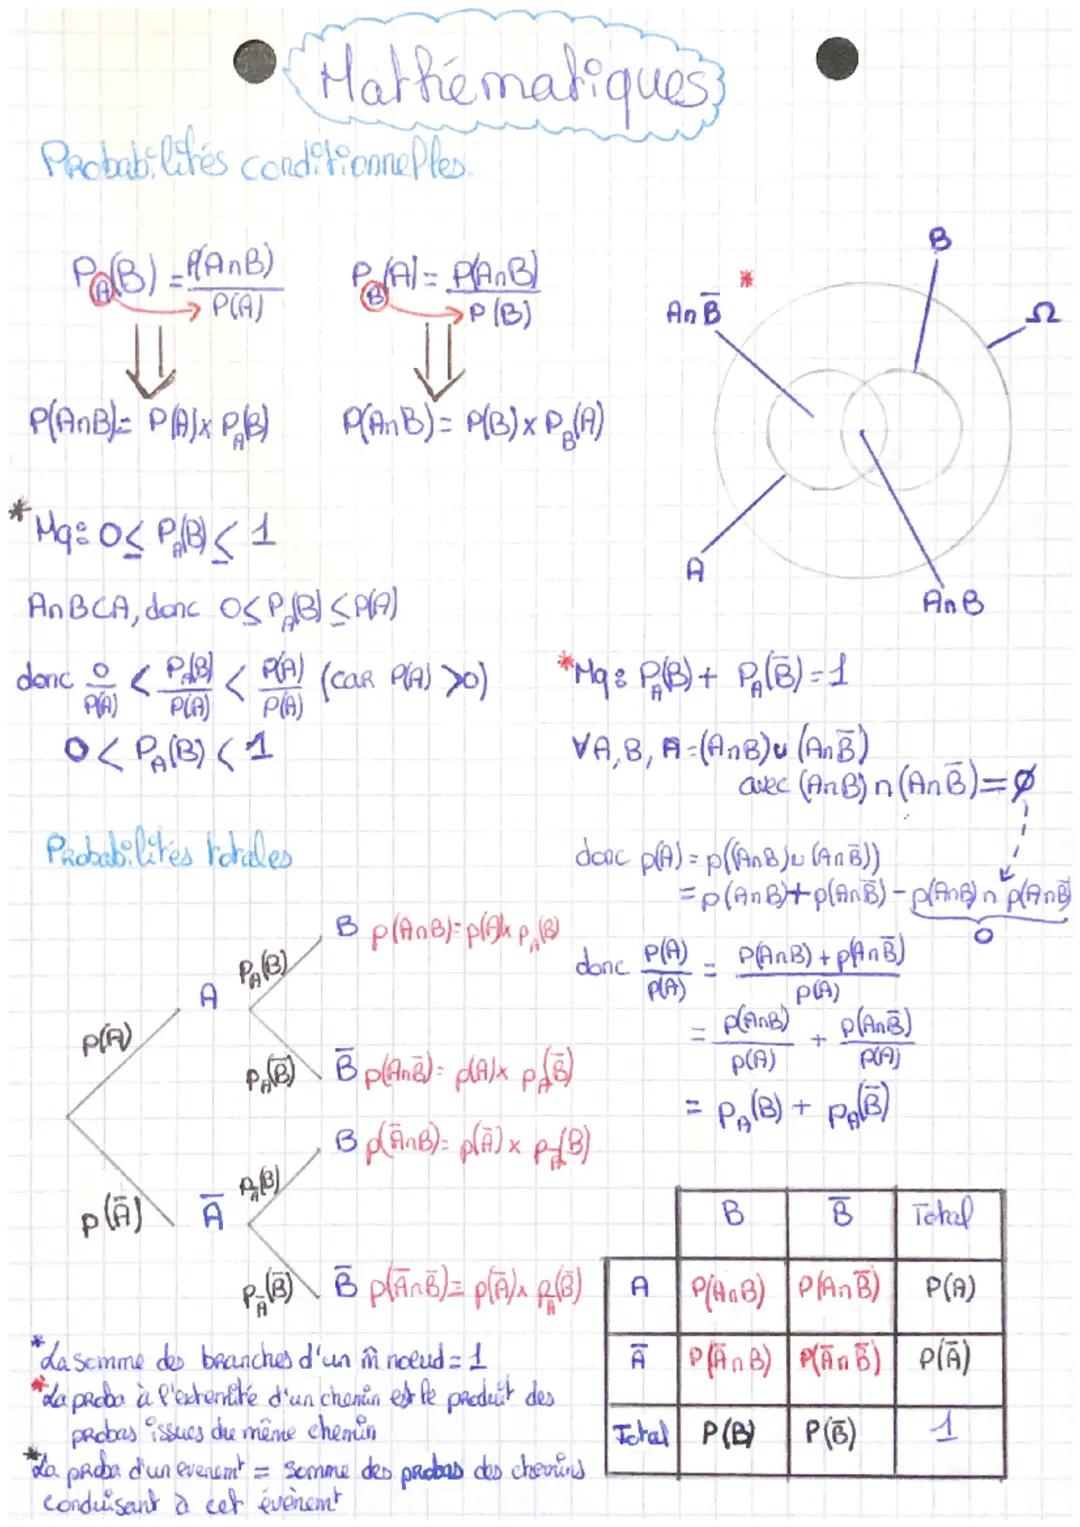 Mathématiques
Probabilités conditionnelles.
P_A(B) = P(A∩B)/P(A)
P_B(A) = P(A∩B)/P(B)
P(A∩B) = P(A) x P_A(B)
P(A∩B) = P(B) x P_B(A)
A∩B̅ *
B
Ω
A
A∩B
* Mq: 0 ≤ P_A(B) ≤ 1
A∩B⊂A, donc 0 ≤ P_A(B) ≤ P(A)
donc 0/P(A) < P_A(B)/P(A) < P(A)/P(A) (car P(A) >0)
0 < P_A(B) < 1
* Mq: P_A(B) + P_A(B̅) = 1
∀A,B, A=(A∩B)∪(A∩B̅)
avec (A∩B)∩(A∩B̅)=∅
donc p(A) = p((A∩B)∪(A∩B̅))
= p(A∩B)+p(A∩B̅) - p(A∩B)∩p(A∩B̅)
0
donc P(A)/P(A) = P(A∩B)+p(A∩B̅)/p(A)
= p(A∩B)/p(A) + p(A∩B̅)/p(A)
= p_A(B) + p_A(B̅)
Probabilités totales
B p(A∩B)=p(A)x p_A(B)
P_A(B)
A
p(A)
P_A(B̅)
B̅ p(A∩B̅)= p(A)x p_A(B̅)
B p(A̅∩B)= p(A̅) x p_A̅(B)
P_A̅(B)
p(A̅)
A̅
P_A̅(B̅)
B̅ p(A̅∩B̅)= p(A̅)x p_A̅(B̅)
B B̅ Total
A P(A∩B) P(A∩B̅) P(A)
A̅ P(A̅∩B) P(A̅∩B̅) P(A̅)
Total P(B) P(B̅) 1
* La somme des branches d'un m̂ noeud = 1
* La proba à l'extremité d'un chemin est le produit des
probas issues du même chemin
* La proba d'un evenemt = somme des probas des chemins
conduisant à cet évènemt